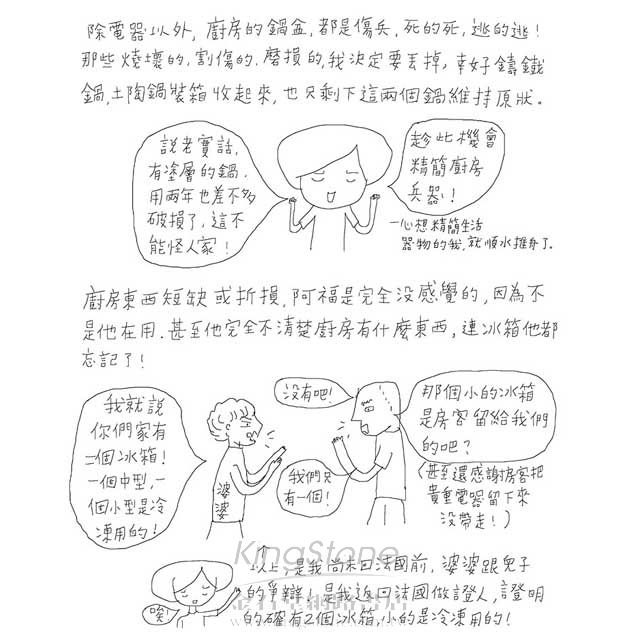 除電器以外, 廚房的鍋盆, 都是傷兵, 死的死, 逃的逃!
那些燒壞的, 割傷的, 磨損的, 我決定要丟掉, 幸好鑄鐵
鍋, 土陶鍋裝箱收起來, 也只剩下這兩個鍋維持原狀。
說老實話,
有塗層的鍋,
用兩年也差不多
破損了, 這不
能怪人家!
趁此機會
精簡廚房
兵器!
一心想精簡生活
器物的我, 就順水推舟了。
廚房東西短缺或折損, 阿福是完全沒感覺的, 因為不
是他在用. 甚至他完全不清楚廚房有什麼東西, 連冰箱他都
忘記了!
我就說
你們家有
二個冰箱!
一個中型, 一
個小型是冷
凍用的!
婆婆
沒有吧!
我們只
有一個!
那個小的冰箱
是房客留給我們
的吧?
(甚至還感謝房客把
貴重電器留下來
沒帶走!)
以上, 是我尚未回法國前, 婆婆跟兒子
的爭辯! 是我返回法國做證人, 證明
的確有2個冰箱, 小的是冷凍用的!
唉!
KingStone
金石堂網路書店